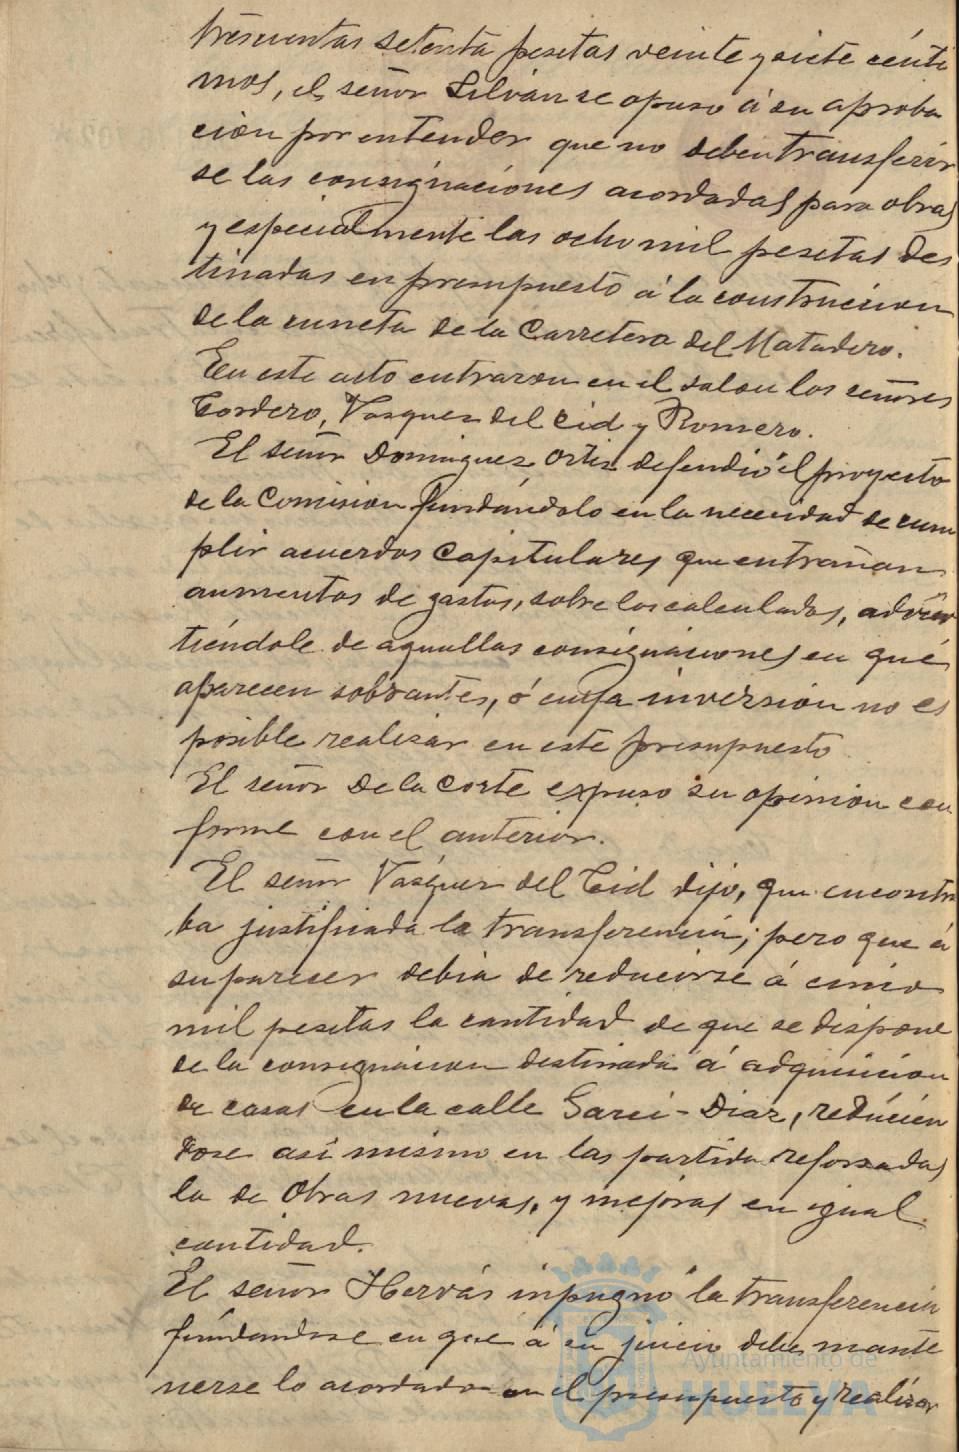 trescientas setenta pesetas veinte y siete cénti
mos, el señor Silván se opuso á su aproba
cion por entender que no deben transferir
se las consignaciones acordadas para obras
y especialmente las ocho mil pesetas des
tinadas en presupuesto á la construccion
de la cuneta de la Carretera del Matadero.
En este acto entraron en el salon los señores
Cordero, Vasquez del Cid y Romero.
El señor Dominguez Ortiz defendió el proyecto
de la Comision fundándolo en la necesidad de cum
plir acuerdos Capitulares que entrañan
aumentos de gastos, sobre los calculados,
tiéndole de aquellas consignaciones en que
aparecen sobrantes, ó cuya inversion no es
posible realizar en este presupuesto
El señor De la Corte expuso su opinion con
forme con el anterior.
El señor Vasquez del Cid dijo, que encontra
ba justificada la transferencia; pero que á
su parecer debia de reducirse á cinco
mil pesetas la cantidad de que se dispone
de la consignacion destinada á adquisicion
de casas en la calle Garci-Diaz, reducien
dose así mismo en las partida reforzadas
la de Obras nuevas, y mejoras en igual
cantidad.
El señor Hervás inpugnó la transferencia
fundandose en que á su juicio debe mante
nerse lo acordado en el presupuesto y realizar
Ayuntamiento de
HUELVA